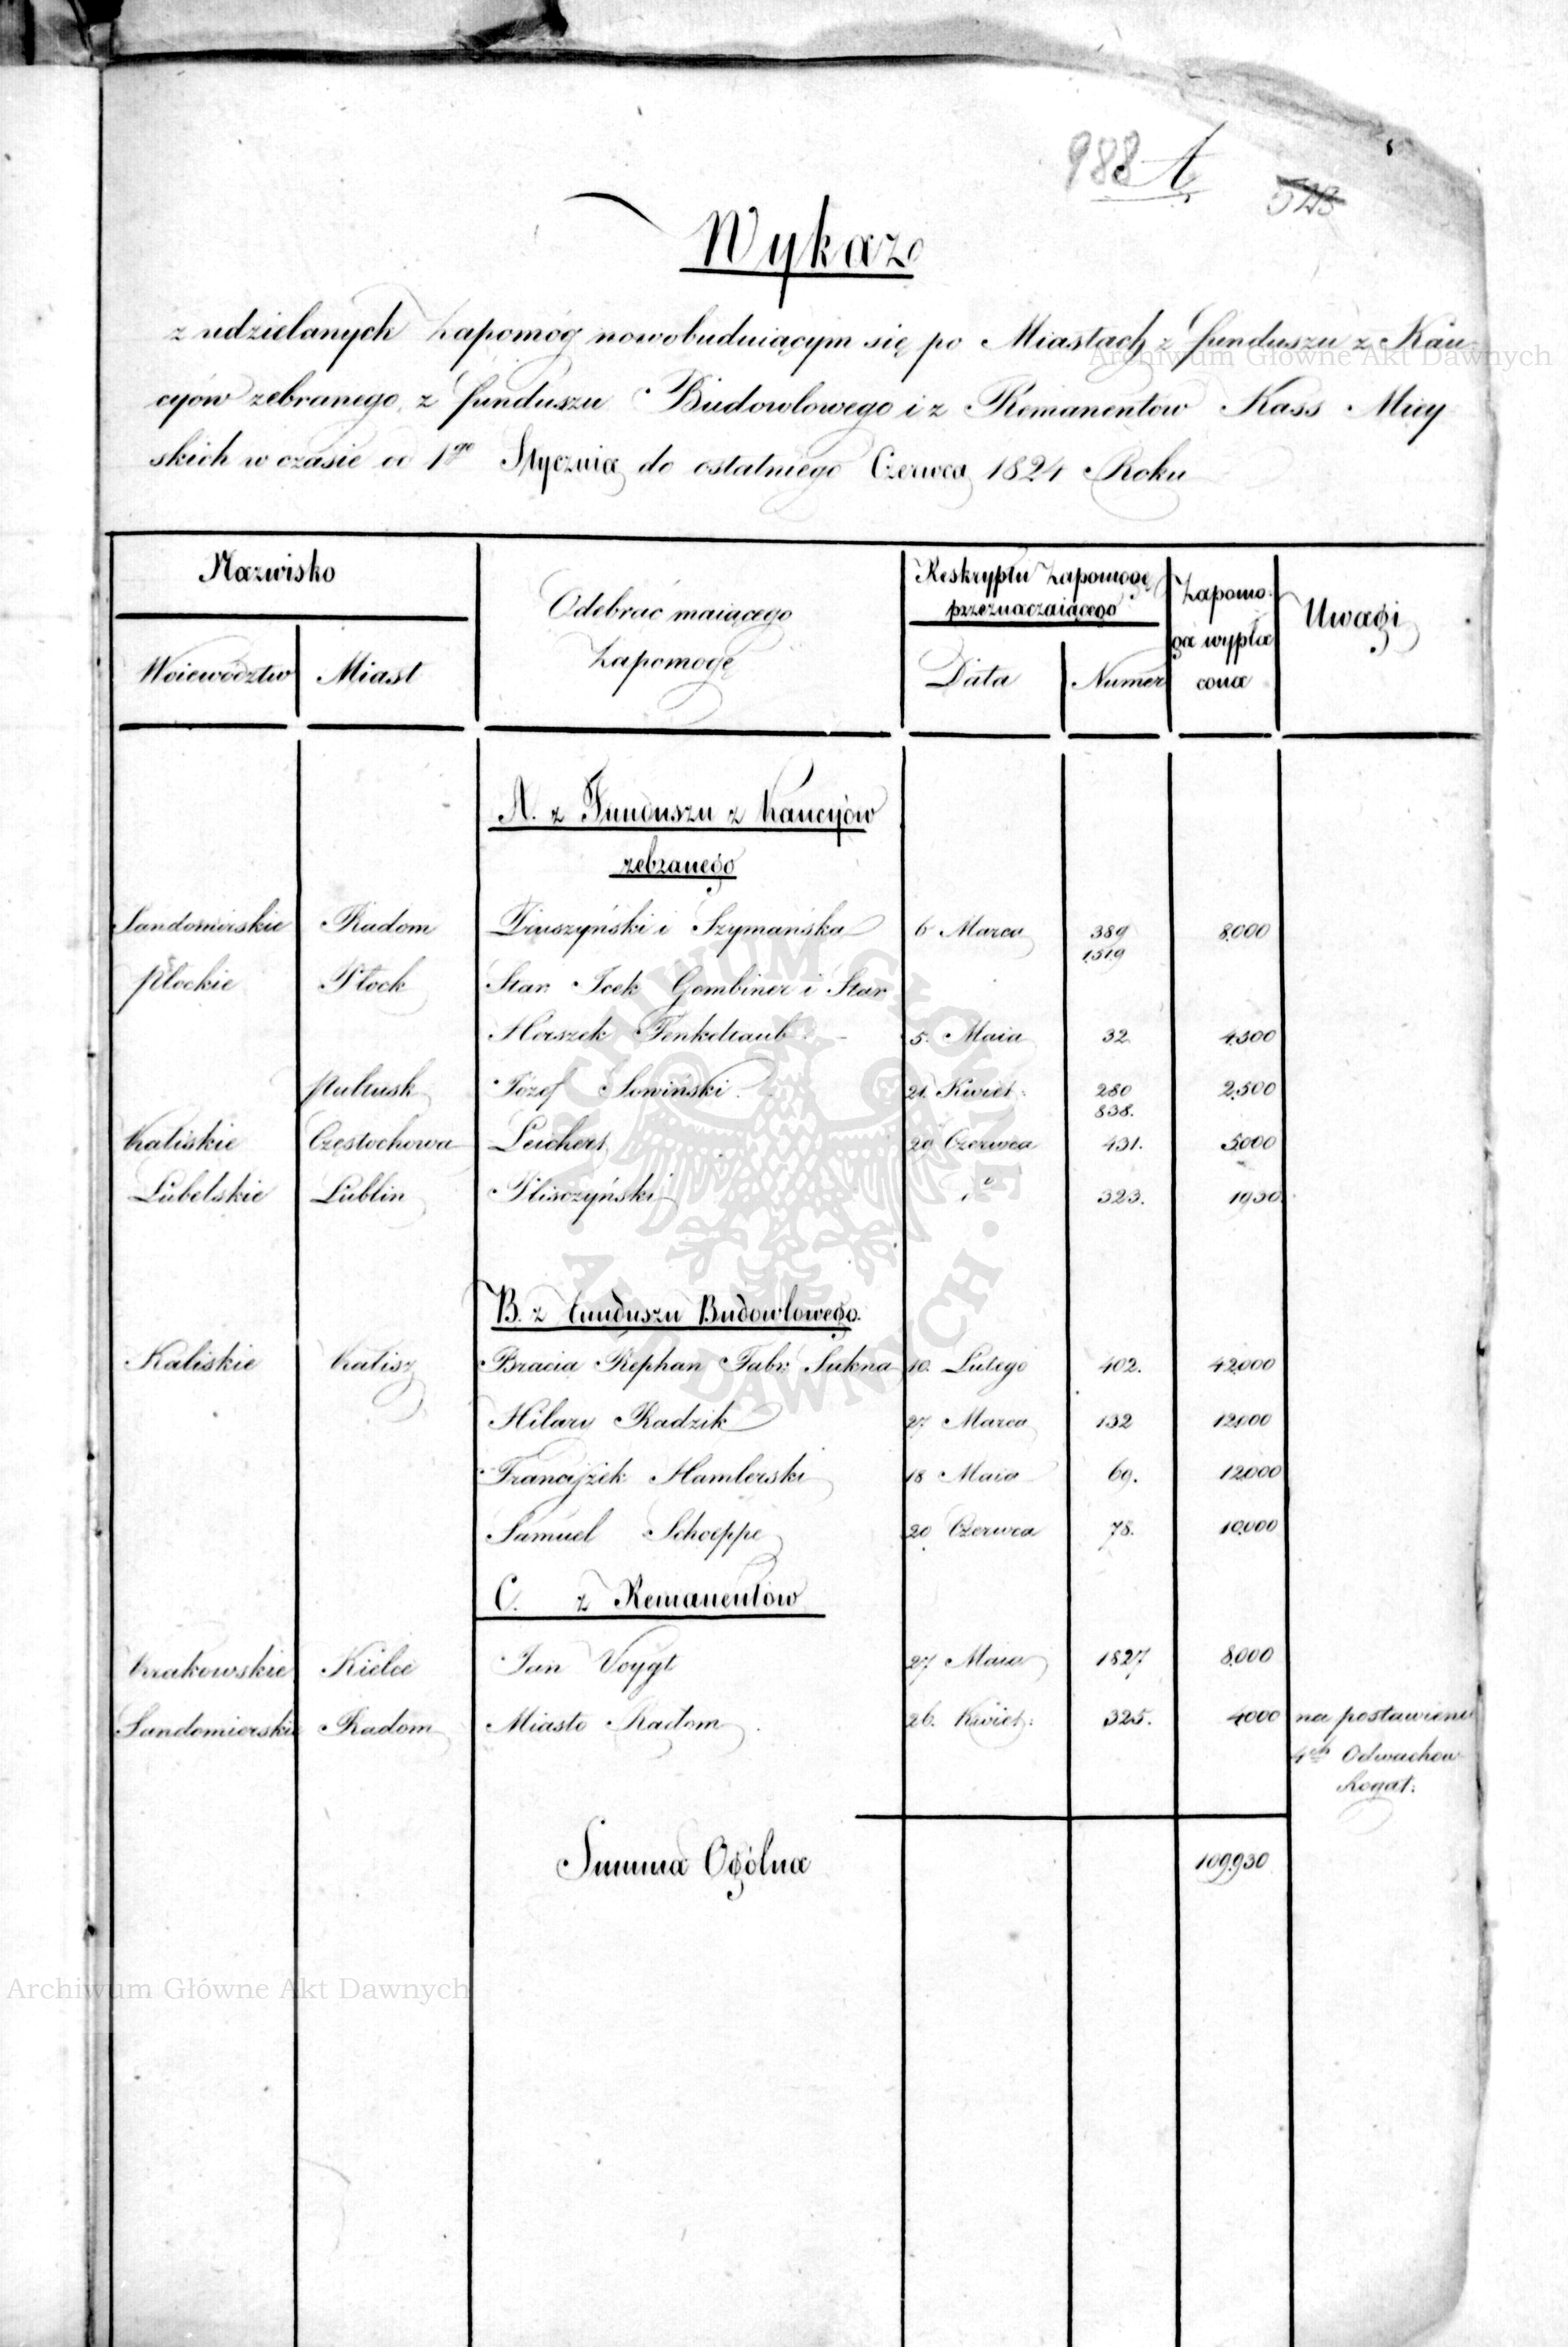 988 A
523
Wykaz
z udzielanych Zapomóg nowobuduiącym się po Miastach z funduszu z Kau-
cyów zebranego, z funduszu Budowlowego i z Remanentów Kass Miey
skich w czasie od 1go Stycznia do ostatniego Czerwca 1824 Roku
Nazwisko
Odebrać maiącego Zapomogę
Reskryptu Zapomogę przeznaczaiącego
Zapomo-
ga wypła
cona
Uwagi
Woiewództw Miast Data Numer
A. z Funduszu z Kaucyów
zebranego
Sandomirskie Radom Druszyński i Szymańska 6 Marca 389 8000
1519
Płockie Płock Star. Icek Gombiner i Star
Herszek Fenkeltaub 5. Maia 32 4500
Pułtusk Józef Sowiński 21. Kwiet: 280 2500
838.
Kaliskie Częstochowa Leichert 20 Czerwca 431. 5000
Lubelskie Lublin Pliszczyński do 323. 1930
B. z funduszu Budowlowego.
Kaliskie Kalisz Bracia Rephan Fabr: Sukna 10. Lutego 402. 42000
Hilary Radzik 27 Marca 132 12000
Franciszek Hamlerski 18 Maia 69. 12000
Samuel Schoeppe 20 Czerwca 78. 10000
C. z Remanentów
Krakowskie Kielce Jan Voygt 27 Maia 1827 8000
Sandomierskie Radom Miasto Radom 26. Kwiet: 325. 4000 na postawienie
4ch Odwachow
Rogat:
Summa Ogólna 109930
Archiwum Główne Akt Dawnych
Archiwum Główne Akt Dawnych
ARCHIWUM GŁÓWNE · AKT DAWNYCH ·